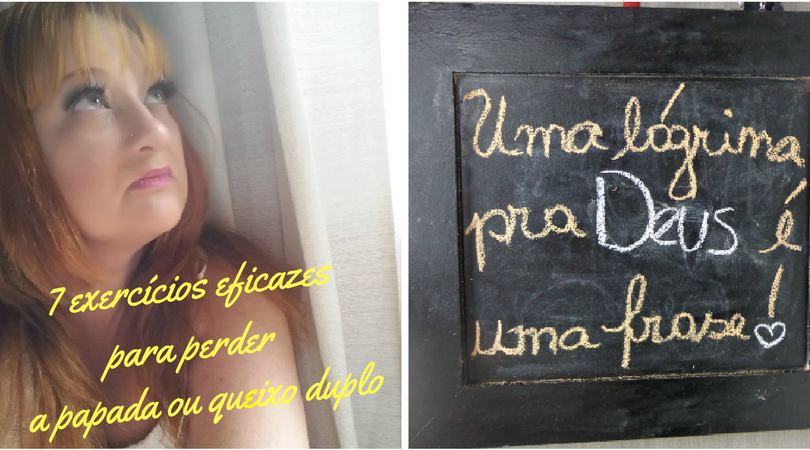 7 exercícios eficazes
para perder
a papada ou queixo duplo
Uma lágrima
pra Deus é
uma frase!